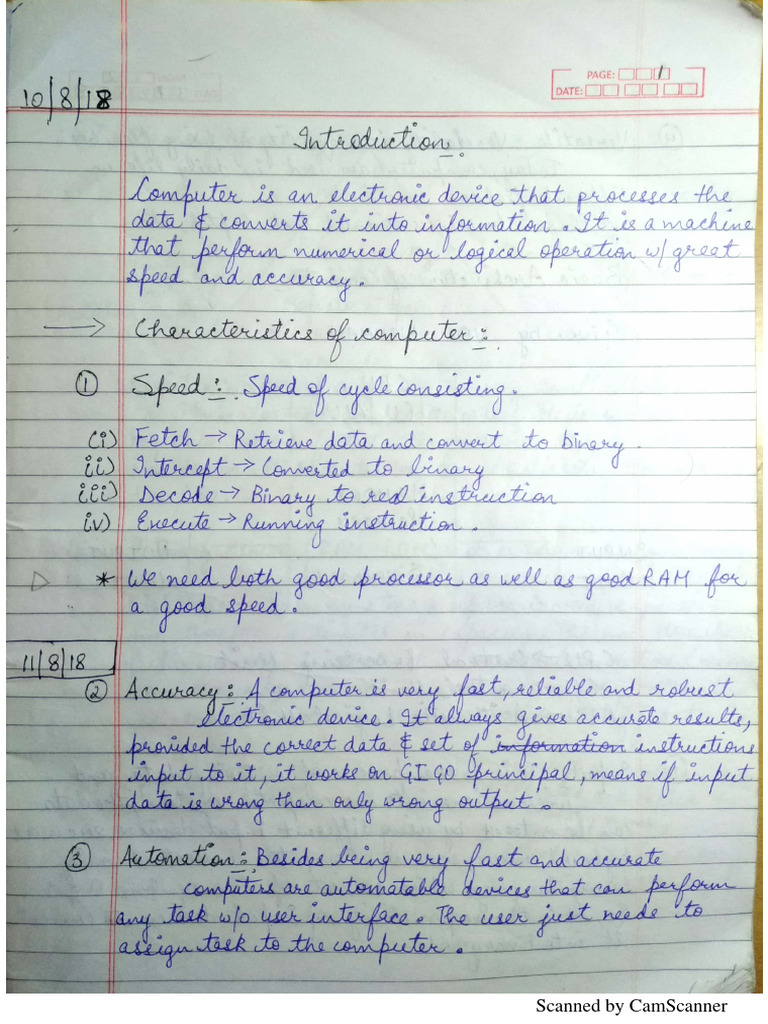 PAGE: 1
DATE:
10/8/18
Introduction:
Computer is an electronic device that processes the
data & converts it into information. It is a machine
that perform numerical or logical operation w/ great
speed and accuracy.
→ Characteristics of computer:
① Speed: Speed of cycle consisting.
(i) Fetch → Retrieve data and convert to binary.
ii) Intercept → Converted to binary
iii) Decode → Binary to real instruction
iv) Execute → Running instruction.
▷ * We need both good processor as well as good RAM for
a good speed.
11/8/18
② Accuracy: A computer is very fast, reliable and robust
electronic device. It always gives accurate results,
provided the correct data & set of information instructions
input to it, it works on GIGO principal, means if input
data is wrong then only wrong output.
③ Automation: Besides being very fast and accurate
computers are automatable devices that can perform
any task w/o user interface. The user just needs to
assign task to the computer.
Scanned by CamScanner